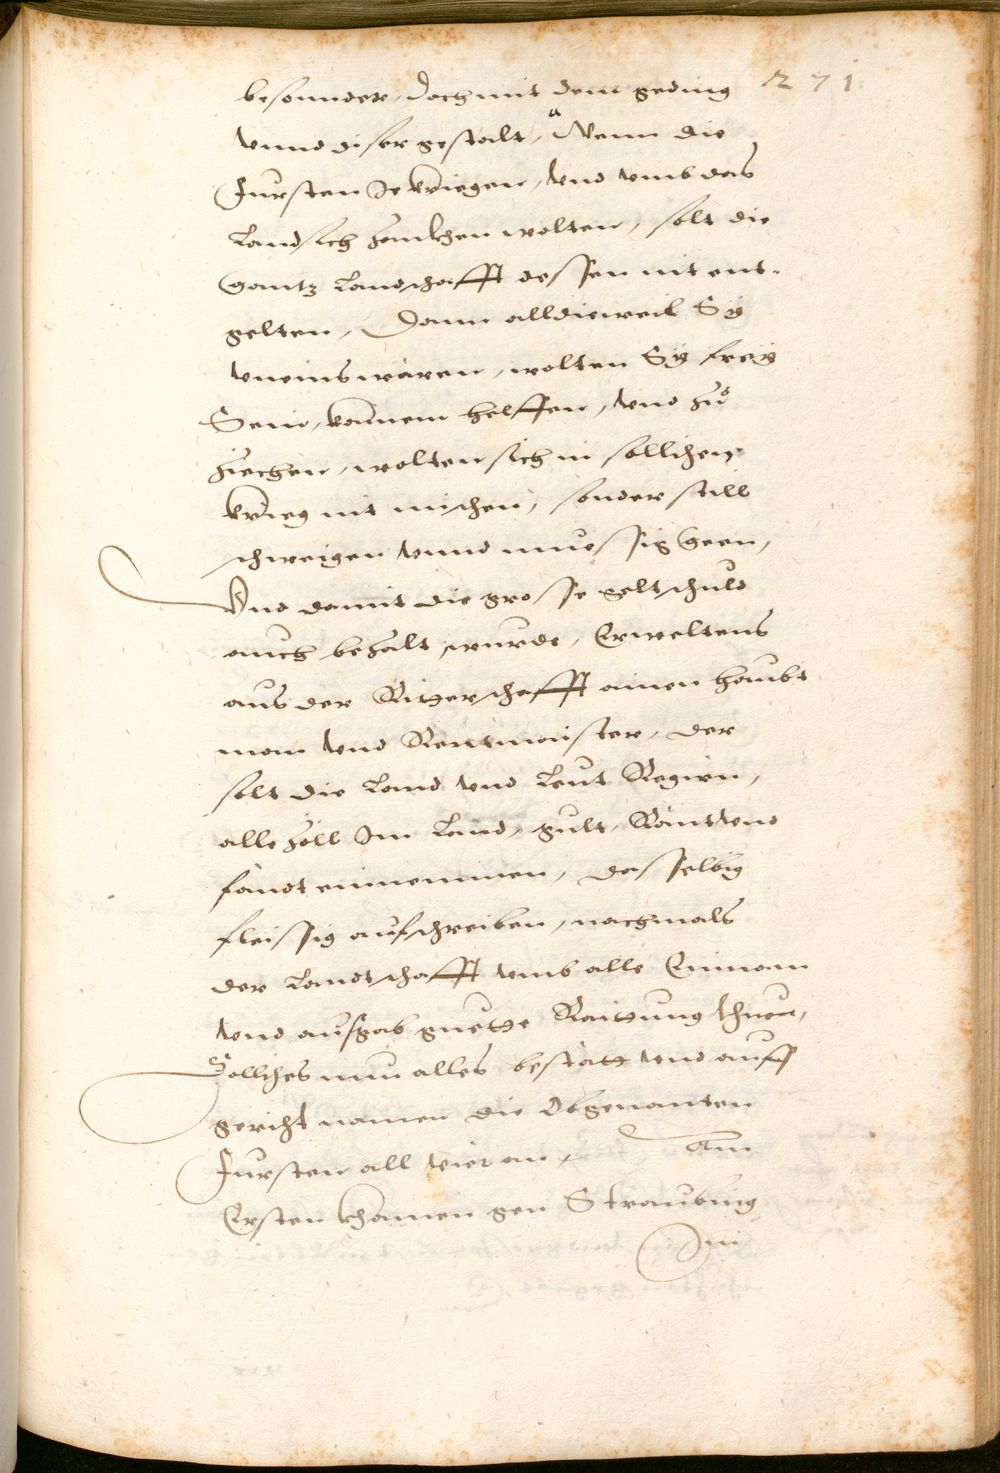 271
besonnder, doch mit dem geding
vnnd diser gestalt, Wenn die
Fursten Je kriegen, Vnd vmb das
Land sich zanckhen wolten, solt die
Gantz Landschafft dessen nit ent-
gelten, Dann alldieweil Sÿ
vneins wären, wolten Sÿ freÿ
Sein, kainem helffen, vnd zů
ziechen, wolten sich in sollichen
krieg nit mischen, sonder still
schweigen vnnd muessig Geen,
Vnd damit die grosse geltschuld
auch bezalt wurde, Erweltens
aus der Ritterschafft ainen haubt
man vnd Rentmaister, der
solt die Land vnd Leut Regirn,
alle Zöll Im Land, gult, Rännt vnd
fändt einnemmen, dasselbig
fleissig aufschreiben, nachmals
der Landtschafft vmb alle Einnam
vnd aufgab guette Raittung thuen,
Solliches nun alles bestätt vnd auff
gericht namen die Obgenanten
Fursten all vier an, Am
Ersten khamen gen Straubing
Im